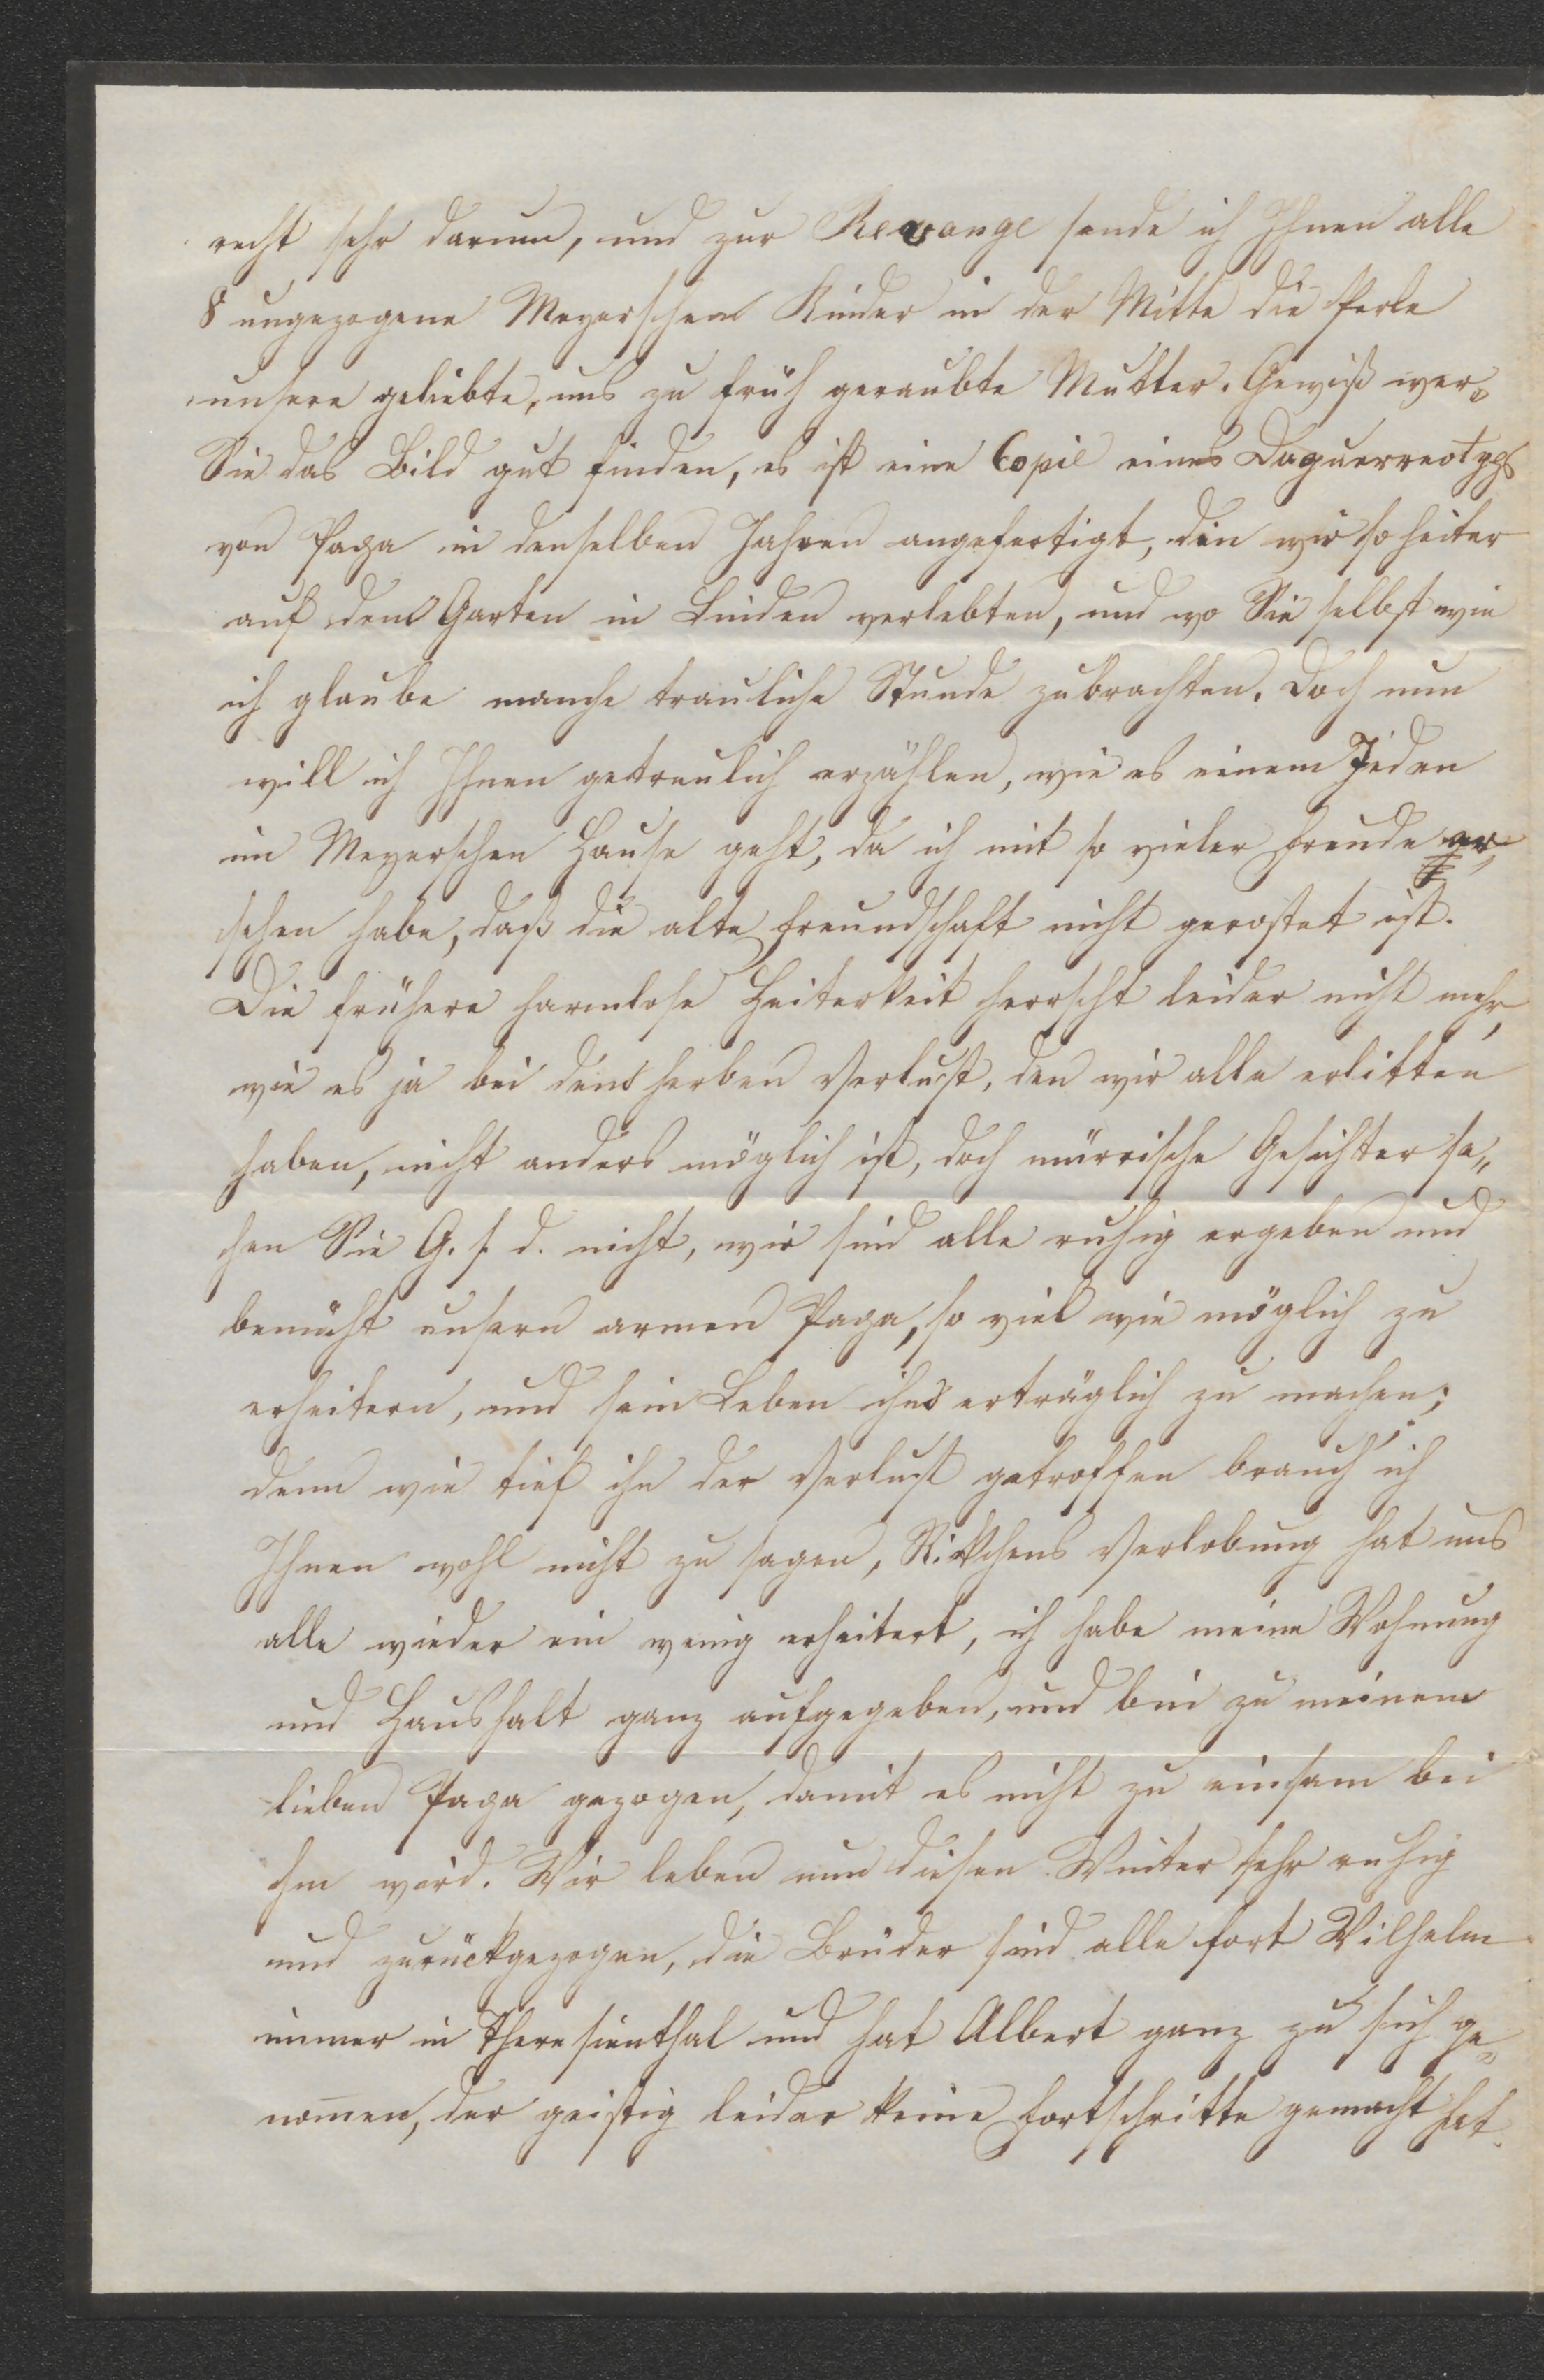 recht sehr darum, und zur Revange sende ich Ihnen alle
8 ungezogene Meyerschen Kinder in der Mitte die Perle
unsere geliebte, uns zu früh geraubte Mutter. Gewiß wer„
Sie das Bild gut finden, es ist eine Copie eines Daguerreotyps
von Papa in denselben Jahren angefertigt, die wir so heiter
auf dem Garten in Linden verlebten, und wo Sie selbst wie
ich glaube manche trauliche Stunde zubrachten. Doch nun
will ich Ihnen getreulich erzählen, wie es einem Jeden
im Meyerschen Hause geht, da ich mit so vieler Freude er„
sehen habe, daß die alte Freundschaft nicht gerostet ist.
Die frühere harmlose Heiterkeit herrscht leider nicht mehr,
wie es ja bei dem herben Verlust, den wir alle erlitten
haben, nicht anders möglich ist, doch mürrische Gesichter se„
hen Sie G. s. d. nicht, wir sind alle ruhig ergeben und
bemüht unsern armen Papa, so viel wie möglich zu
erheitern, und sein Leben ihm erträglich zu machen;
denn wie tief ihn der Verlust getroffen brauch' ich
Ihnen wohl nicht zu sagen, Rikchens Verlobung hat uns
alle wieder ein wenig erheitert, ich habe meine Wohnung
und Haushalt ganz aufgegeben, und bin zu meinem
lieben Papa gezogen, damit es nicht zu einsam bei
ihm wird. Wir leben nun diesen Winter sehr ruhig
und zurückgezogen, die Brüder sind alle fort Wilhelm
immer in Theresienthal und hat Albert ganz zu sich ge„
nom̄en, der geistig leider keine Fortschritte gemacht hat.